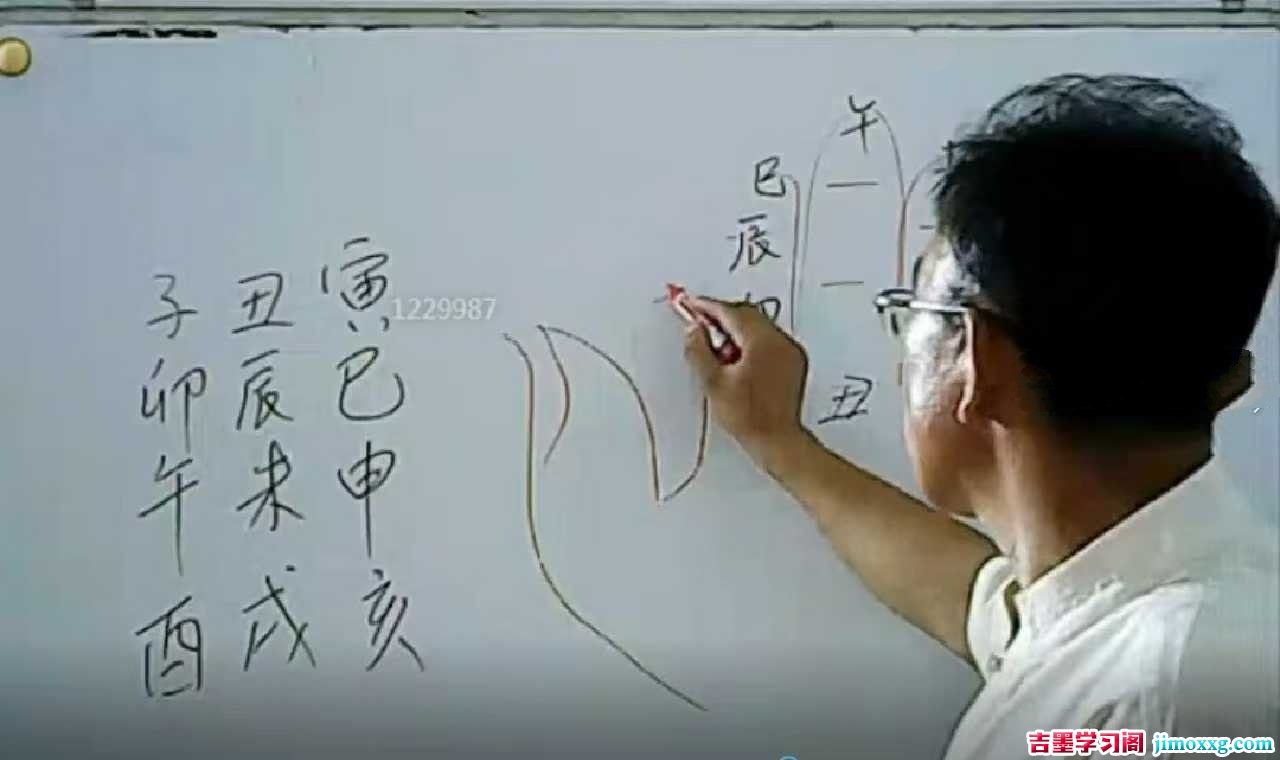 午
巳
辰
丑
子 丑 寅
1229987
卯 辰 巳
午 未 申
酉 戌 亥
吉墨学习阁 jimoxxg.com